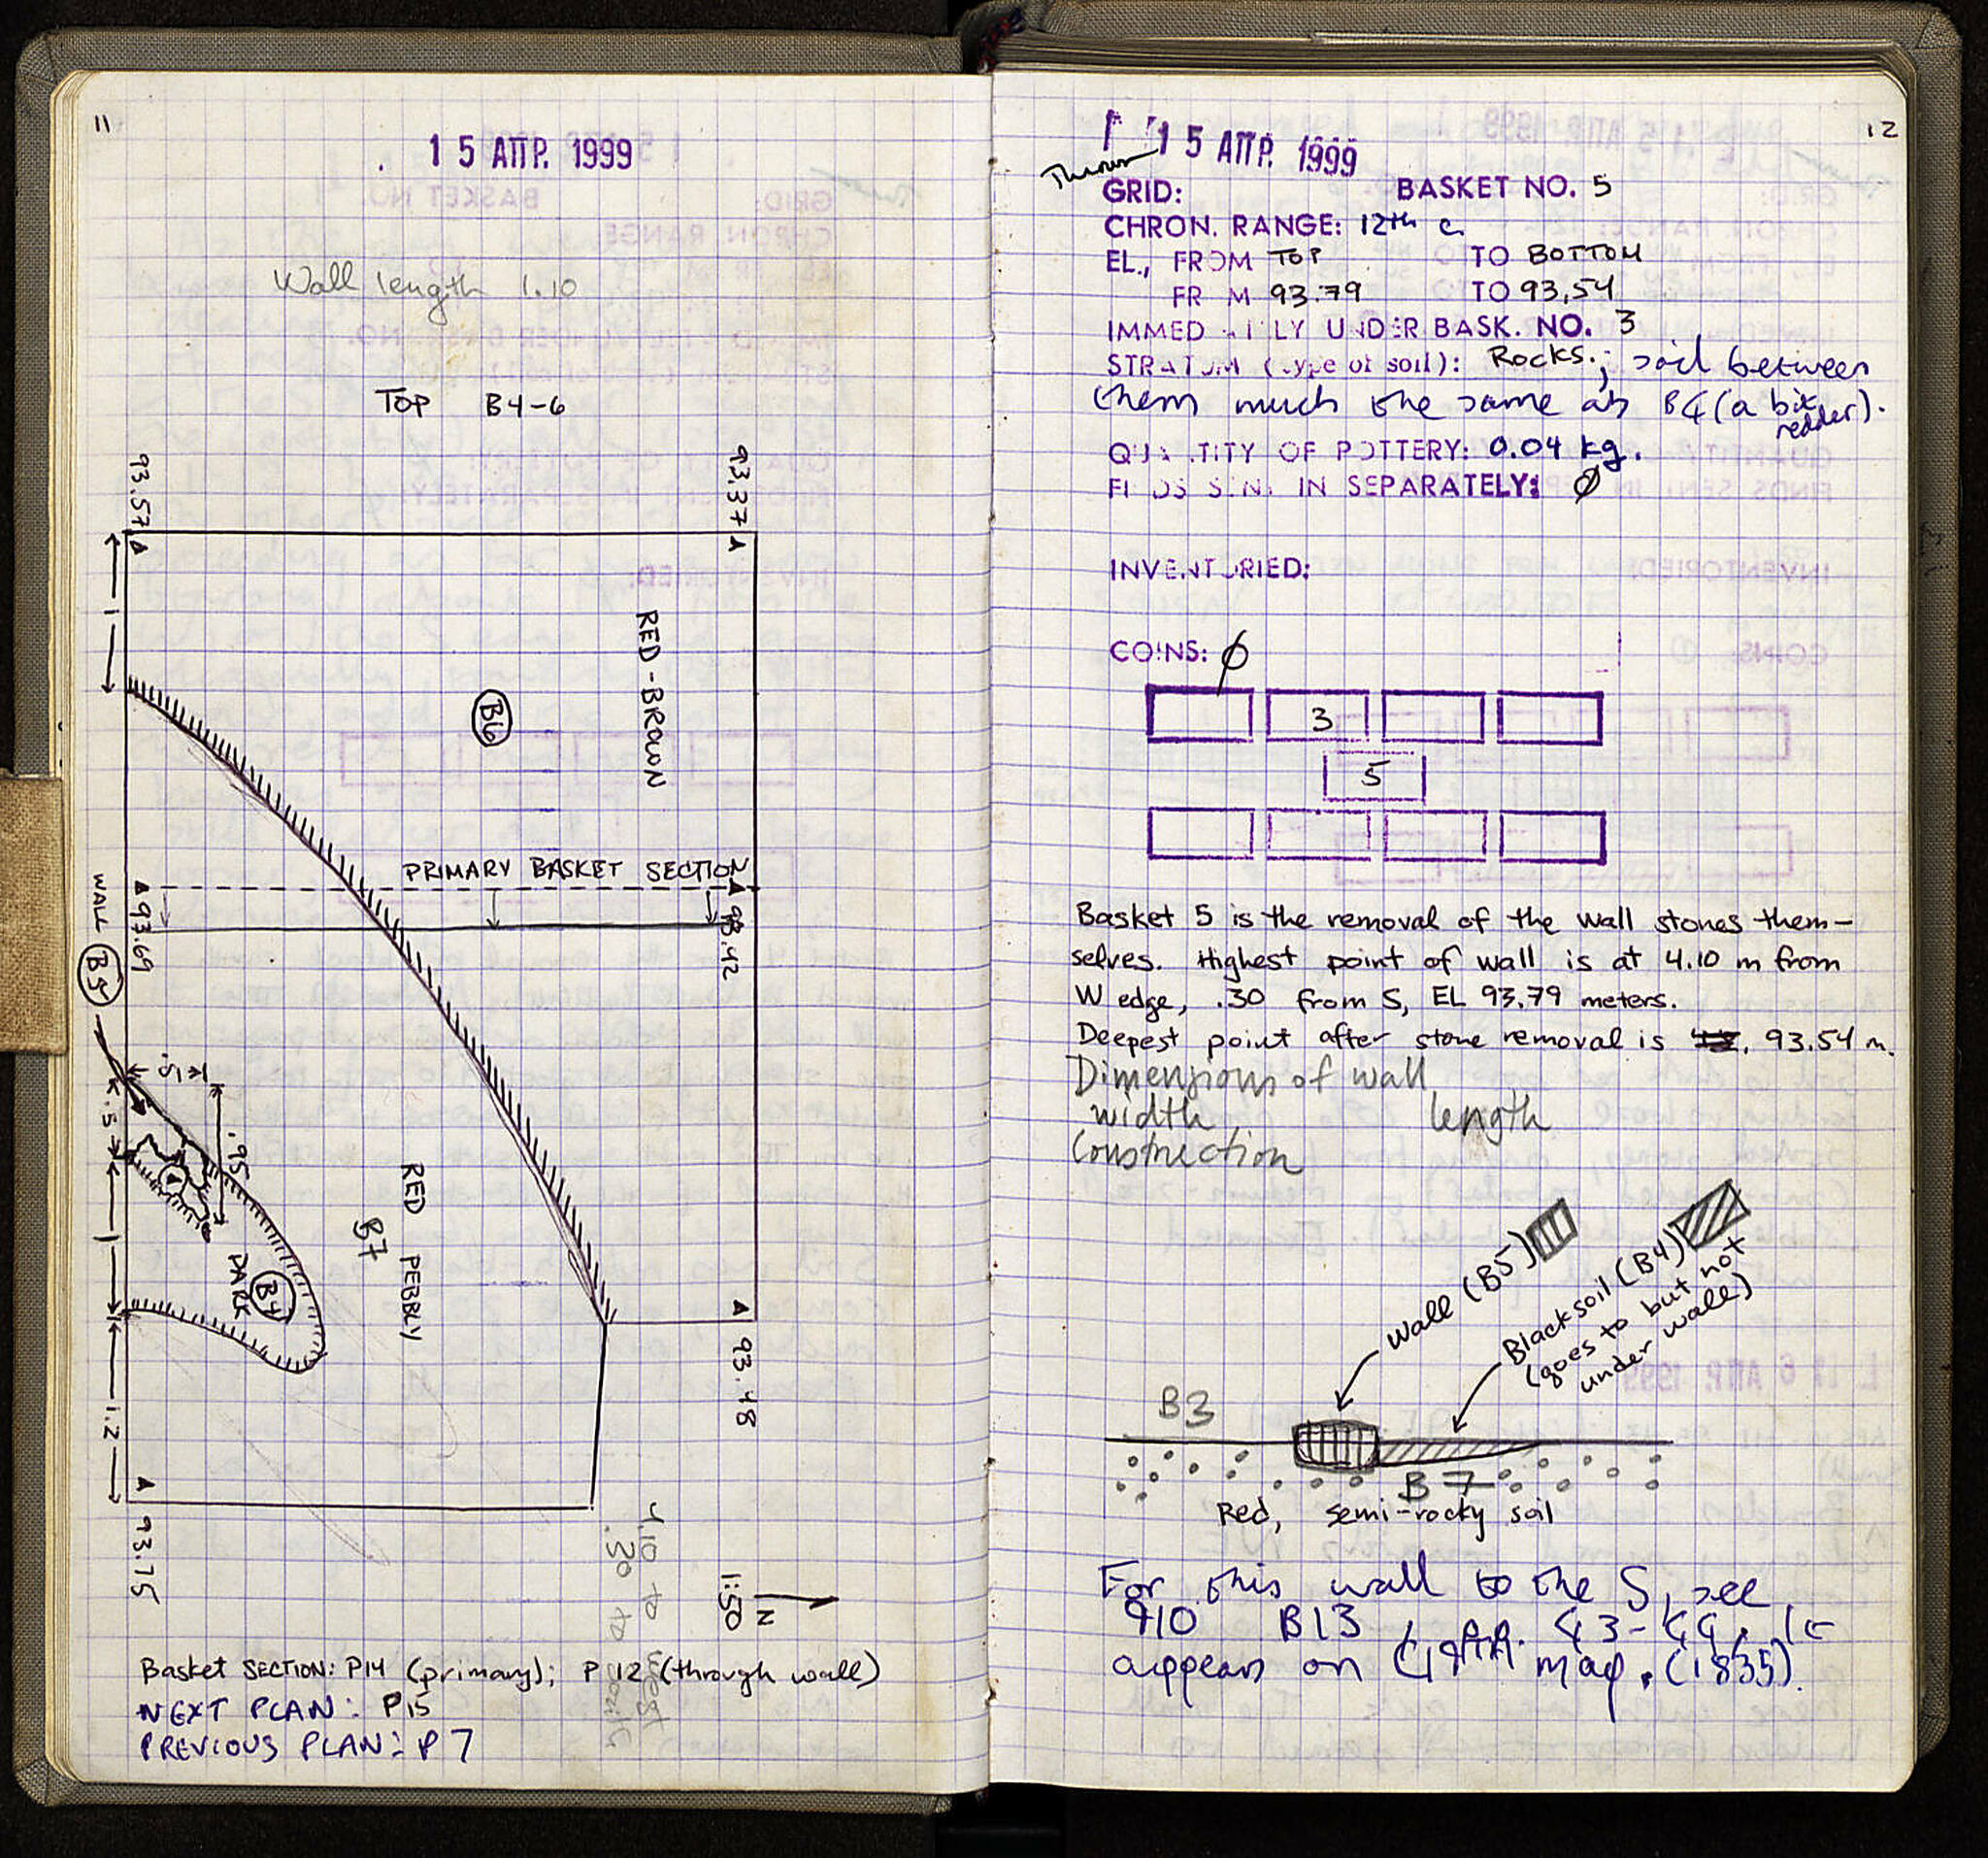 11
15 ΑΠΡ. 1999
Wall length 1.10
TOP B4-6
93.57
93.37
1
RED-BROWN
B6
PRIMARY BASKET SECTION
93.69
93.42
WALL B5
.15
.5
.95
1
RED PEBBLY
B7
DARK
B4
1.2
93.48
93.75
4.10 to west
.30 to south
1:50
N
Basket SECTION: P14 (primary); P 12 (through wall)
NEXT PLAN: P15
PREVIOUS PLAN: P 7
12
15 ΑΠΡ. 1999
Thrown
GRID: BASKET NO. 5
CHRON. RANGE: 12th c.
EL., FROM TOP TO BOTTOM
FR M 93.79 TO 93.54
IMMED LY UNDER BASK. NO. 3
STRATUM (type of soil): Rocks.; soil between
them much the same as B4 (a bit
redder).
QUANTITY OF POTTERY: 0.04 kg.
FINDS SENT IN SEPARATELY: Ø
INVENTORIED:
COINS: Ø
3
5
Basket 5 is the removal of the wall stones them-
selves. Highest point of wall is at 4.10 m from
W edge, .30 from S, EL 93.79 meters.
Deepest point after stone removal is 93.54 m.
Dimensions of wall
width length
Construction
Wall (B5)
Black soil (B4)
(goes to but not
under wall)
B3
B7
Red, semi-rocky soil
For this wall to the S, see
910 B13, pp. 43-44. It
appears on map. (1835).